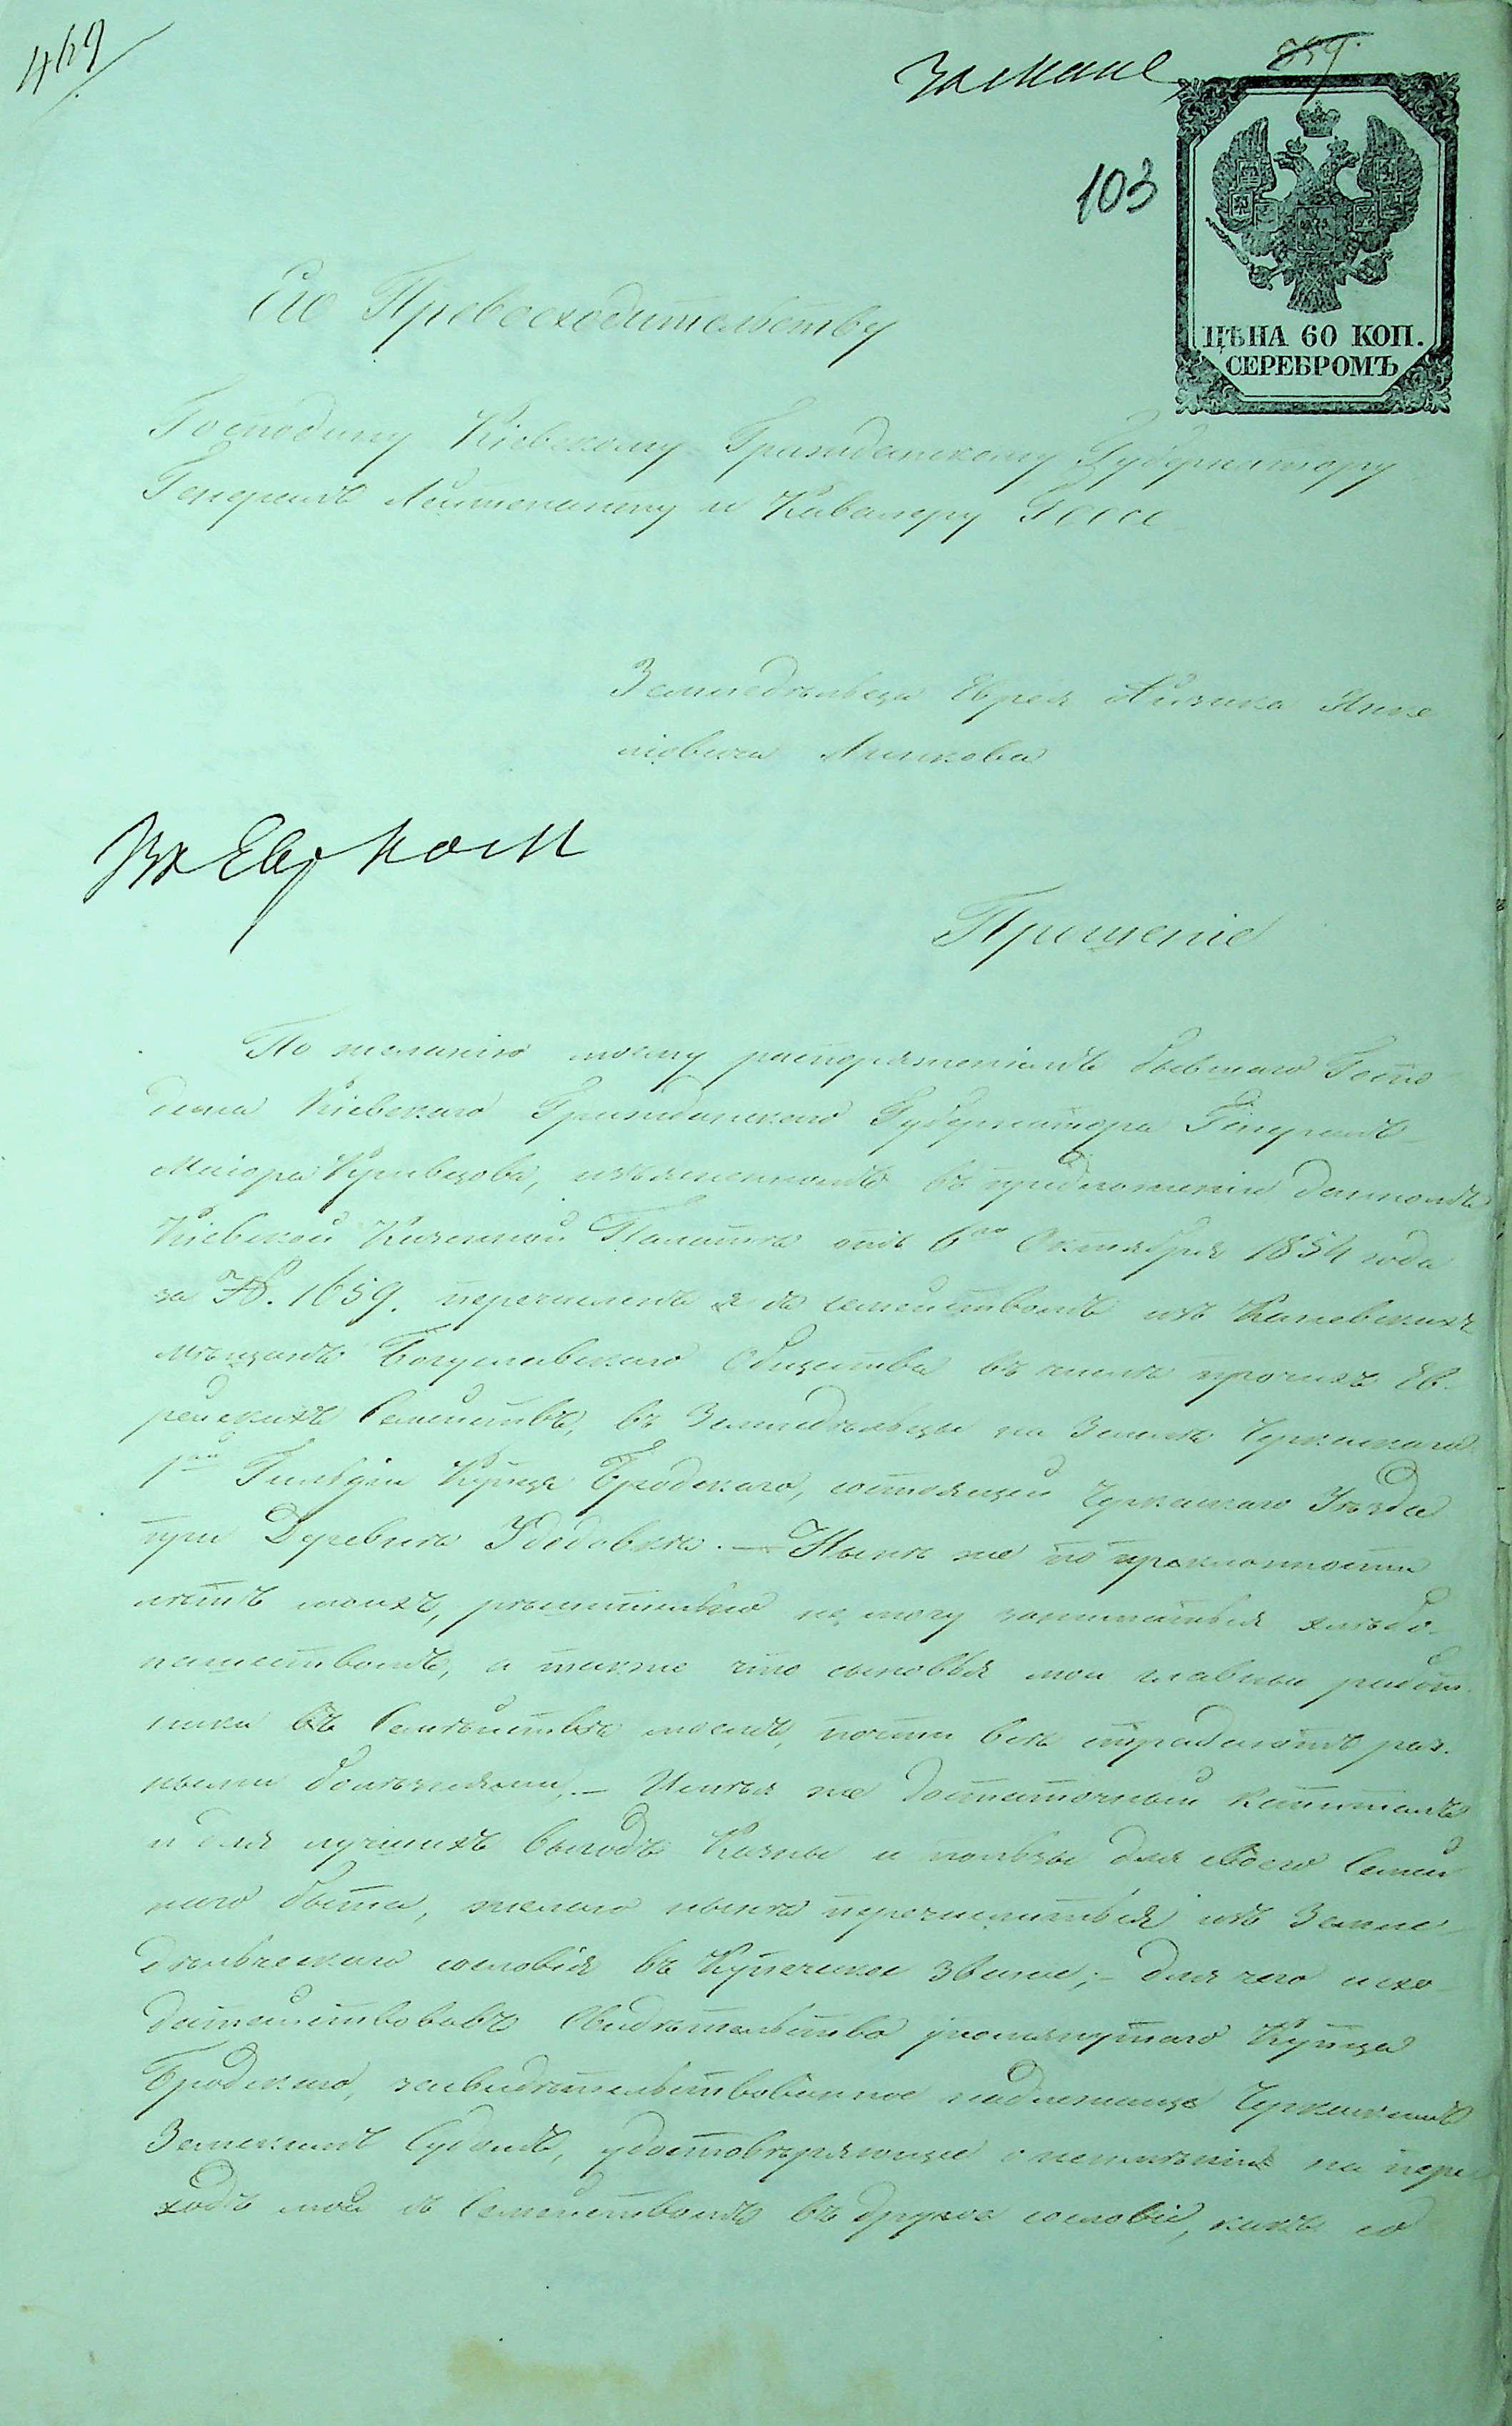 469
859.
103
ЦѢНА 60 КОП.
СЕРЕБРОМЪ
Его Превосходительству
Господину Кіевскому Гражданскому Губернатору
Генералъ Лейтенанту и Кавалеру Гессе
Земледѣльца Еврея Айзика Янке
ліовича
Прошеніе
По желанію моему распоряженіемъ бывшаго Госпо
дина Кіевскаго Гражданскаго Губернатора Генералъ
Маіора Кривцова, изъясненномъ въ предложеніи данномъ
Кіевской Казенной Палатѣ отъ 6го Октября 1854 года
за №. 1659. перечисленъ я съ семействомъ изъ Каневскихъ
мѣщанъ Богуславскаго Общества въ числѣ прочихъ Ев-
рейскихъ Семействъ, въ Земледѣльцы на Землѣ Черкаскаго
1ой Гильдіи Купца Бродскаго, состоящей Черкаскаго Уѣзда
при Деревнѣ Удодовкѣ. — Нынѣ же по преклонности
лѣтъ моихъ, рѣшительно не могу заниматься хлѣбо-
пашествомъ, а также что сыновья мои главные работ-
ники въ Семѣйствѣ моемъ, почти всѣ страдаютъ раз-
ными болѣзнями. — Имѣя же достаточный капиталъ
и для лучшихъ выгодъ Казны и пользы для своего Семей
наго быта, желаю нынѣ перечислиться изъ Земле-
дѣльческаго сословія въ Купеческое званіе; — для чего исхо-
датайствовавъ Свидѣтельство упомянутаго Купца
Бродскаго, засвидѣтельствованное надлежаще Черкаскимъ
Земскимъ Судомъ, удостовѣряющее о неимѣніи на пере
ходъ мой съ Семействомъ въ другое сословіе, какъ со